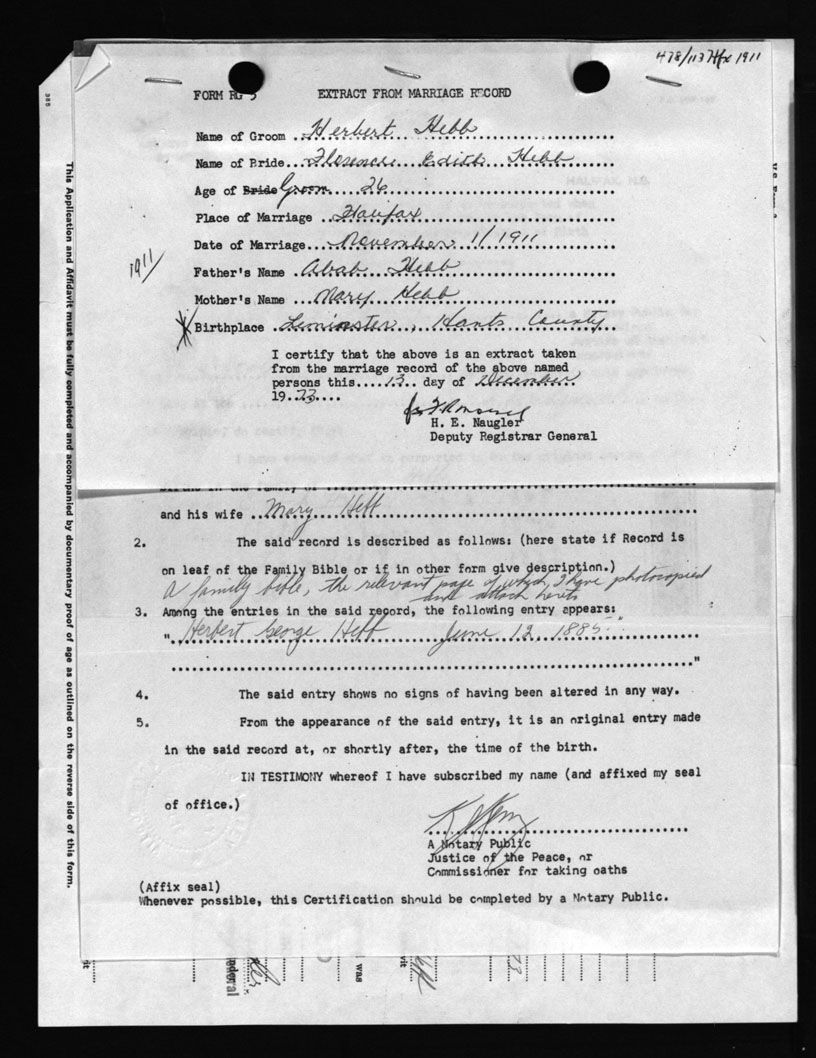 478/113 Hfx 1911
FORM RG 3 EXTRACT FROM MARRIAGE RECORD
Name of Groom Herbert Hebb
Name of Bride Florence Edith Hebb
Age of Bride Groom 26
Place of Marriage Halifax
Date of Marriage November 1/1911
1911
Father's Name Ahab Hebb
Mother's Name Mary Hebb
Birthplace Leminster, Hants County
I certify that the above is an extract taken
from the marriage record of the above named
persons this 13 day of December
1973
H. E. Naugler
Deputy Registrar General
births in the family of
and his wife Mary Hebb
2. The said record is described as follows: (here state if Record is
on leaf of the Family Bible or if in other form give description.)
A family bible, the relevant page of which I have photocopied
and attach hereto
3. Among the entries in the said record, the following entry appears:
"Herbert George Hebb June 12, 1885"
"
4. The said entry shows no signs of having been altered in any way.
5. From the appearance of the said entry, it is an original entry made
in the said record at, or shortly after, the time of the birth.
IN TESTIMONY whereof I have subscribed my name (and affixed my seal
of office.)
A Notary Public
Justice of the Peace, or
Commissioner for taking oaths
(Affix seal)
Whenever possible, this Certification should be completed by a Notary Public.
385
This Application and Affidavit must be fully completed and accompanied by documentary proof of age as outlined on the reverse side of this form.
was